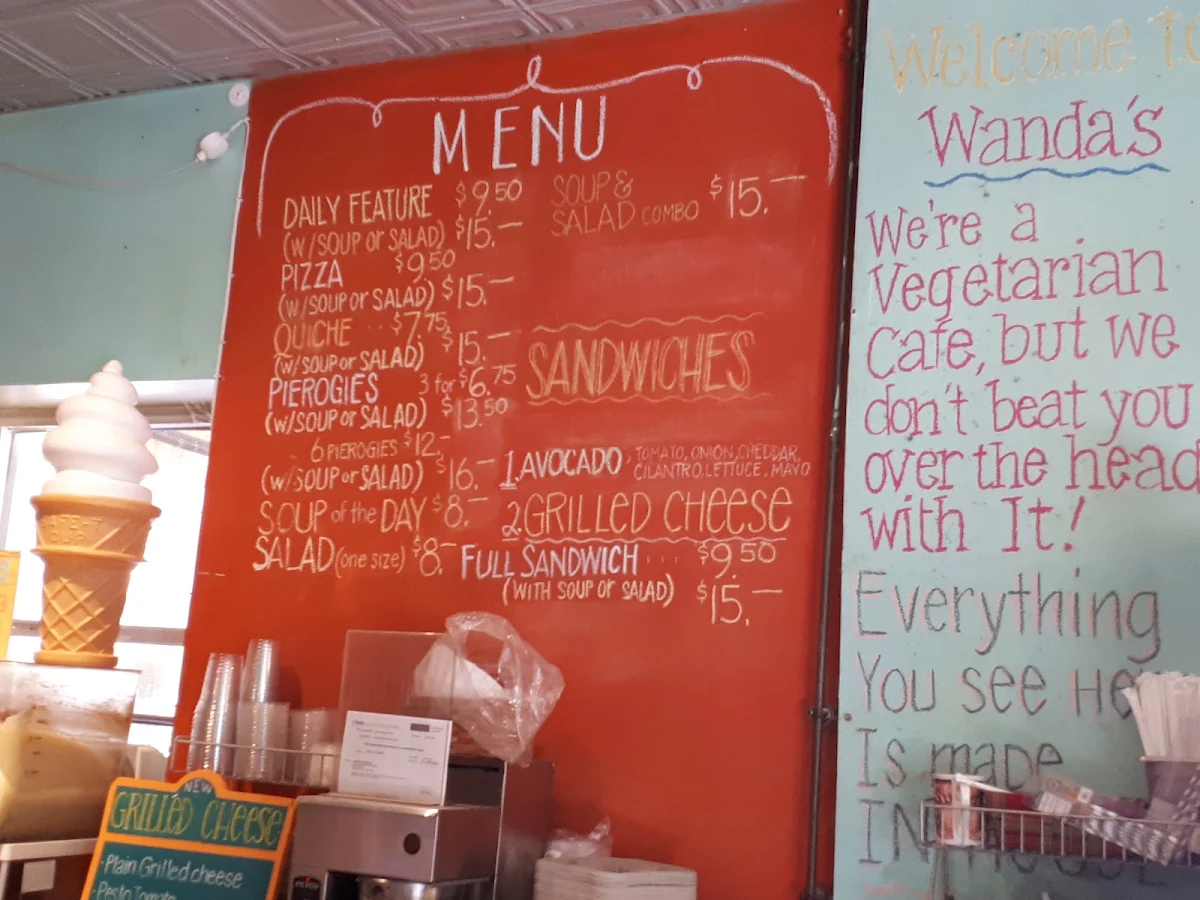 MENU
DAILY FEATURE $9.50
(W/SOUP or SALAD) $15.—
PIZZA $9.50
(W/SOUP or SALAD) $15.—
QUICHE ... $7.75
(W/SOUP or SALAD) $15.—
PIEROGIES 3 for $6.75
(W/SOUP or SALAD) $13.50
6 PIEROGIES $12.—
(W/SOUP or SALAD) $16.—
SOUP of the DAY $8.—
SALAD (one size) $8.—
SOUP &
SALAD COMBO $15.—
SANDWICHES
1. AVOCADO - TOMATO, ONION, CHEDDAR,
CILANTRO, LETTUCE, MAYO
2. GRILLED CHEESE
FULL SANDWICH ... $9.50
(WITH SOUP or SALAD) $15.—
Welcome to
Wanda's
We're a
Vegetarian
Cafe, but we
don't beat you
over the head
with It!
Everything
You see
Is made
NEW
GRILLED CHEESE
· Plain Grilled cheese
· Pesto Tomato